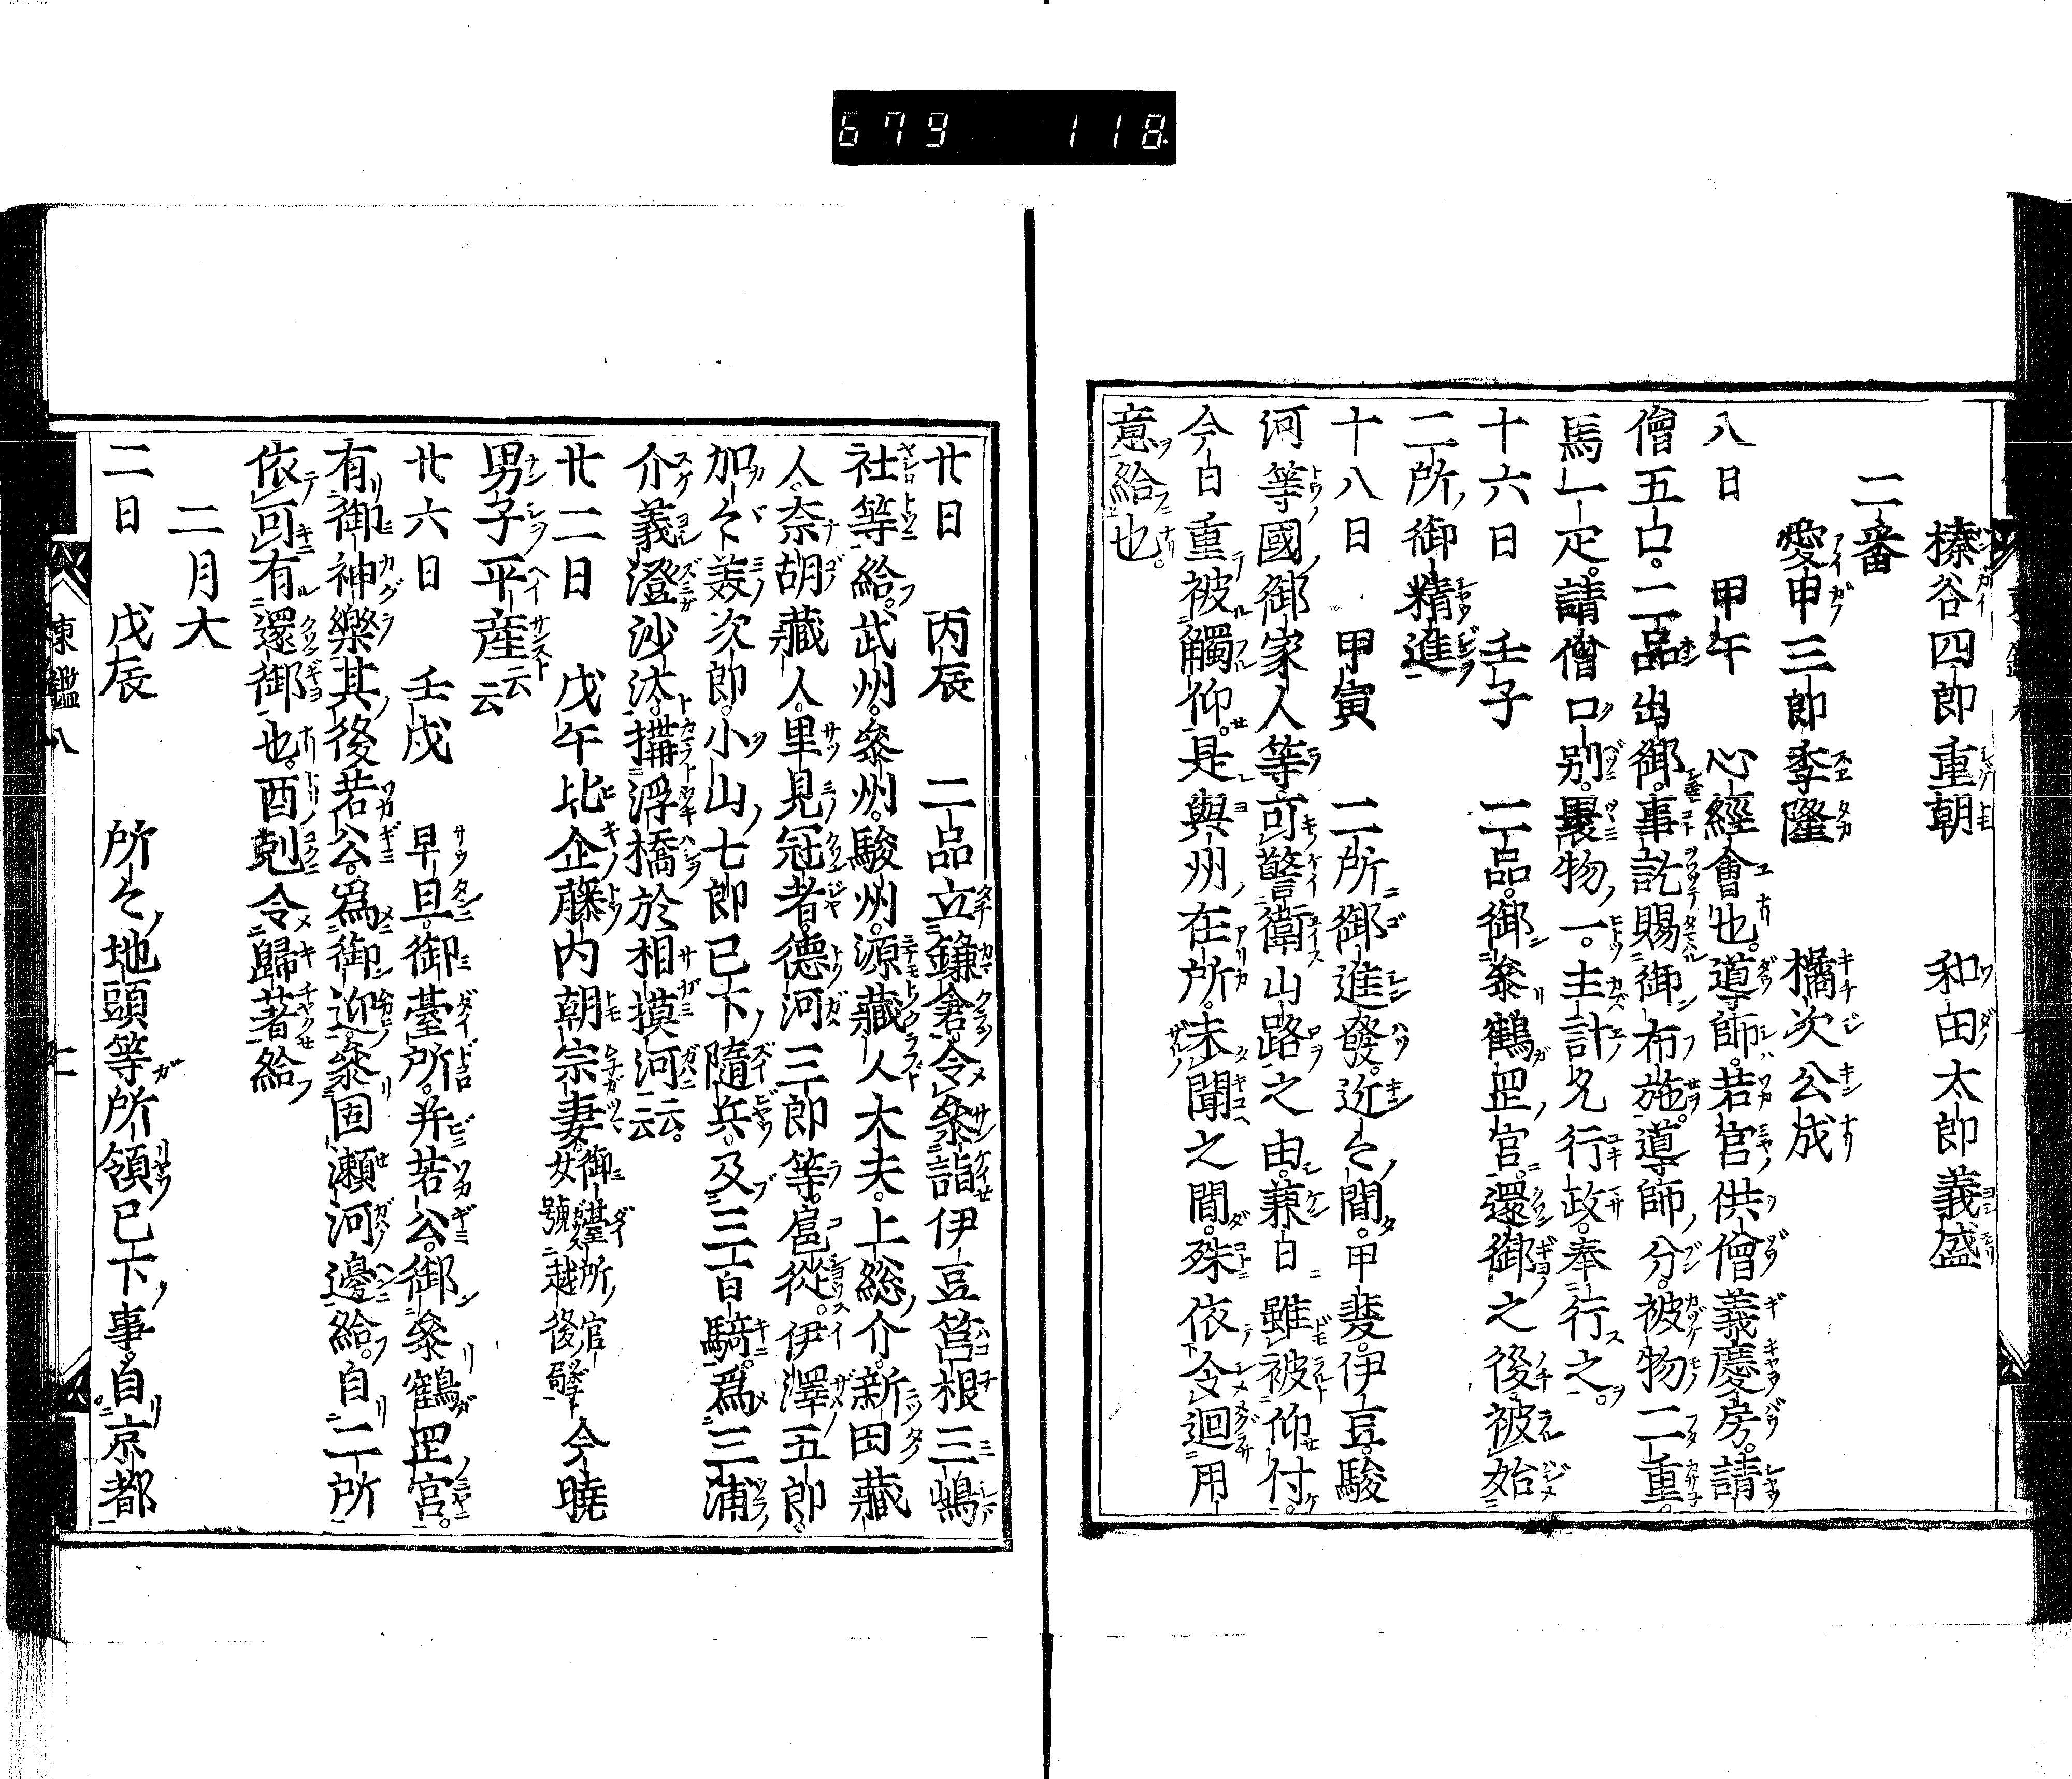 679 118
榛谷四郎重朝 和田太郎義盛
二番
愛甲三郎季隆 橘次公成
八日 甲午 心經會也。導師。若宮供僧義慶房。請
僧五口。二品出御。事訖賜御布施。導師分。被物二重。
馬一疋。請僧口別。裹物一。主計允行政。奉行之。
十六日 壬子 二品。御參鶴岡宮。還御之後被始
二所御精進
十八日 甲寅 二所御進發。近々間。甲斐。伊豆。駿
河等國御家人等。可警衛山路之由。兼日雖被仰付。
今日重被觸仰。是與州在所。未聞之間。殊依令迴用
意給也。
廿日 丙辰 二品立鎌倉。令參詣伊豆筥根三嶋
社等給。武州。參州。駿州。源藏人大夫。上総介。新田藏
人。奈胡藏人。里見冠者。德河三郎等。扈從。伊澤五郎。
加々美次郎。小山七郎已下隨兵。及三百騎。爲三浦
介義澄沙汰。搆浮橋於相摸河云云。
廿二日 戊午 比企藤内朝宗妻。御臺所官女號越後局 今曉
男子平産云云
廿六日 壬戌 早旦。御臺所。并若公。御參鶴岡宮。
有御神樂。其後若公。爲御迎。參固瀬河邊給。自二所
依可有還御也。酉剋令歸著給
二月大
二日 戊辰 所々地頭等所領已下事。自京都
東鑑八